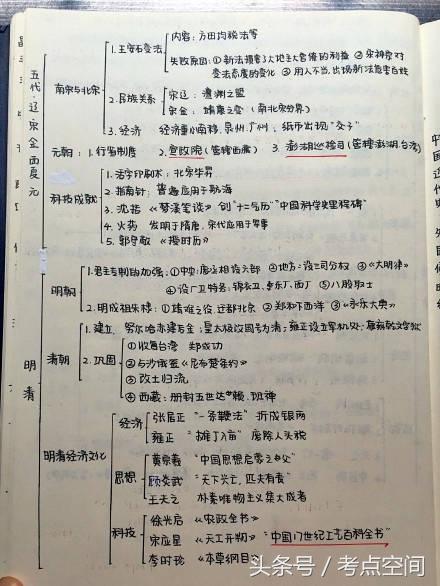 五代·辽宋金西夏元
南宋与北宋
1. 王安石变法
内容: 方田均税法等
失败原因: ① 新法损害了大地主大官僚的利益 ② 宋神宗对
变法态度的变化 ③ 用人不当,出现新法危害百姓
2. 民族关系
宋辽: 澶渊之盟
宋金: 靖康之变 (南北宋分界)
3. 经济 经济重心南移, 泉州、广州, 纸币出现"交子"
元朝: 1. 行省制度 2. 宣政院(管辖西藏) 3. 澎湖巡检司(管辖澎湖,台湾)
科技成就
1. 活字印刷术: 北宋毕昇
2. 指南针: 普遍应用于航海
3. 沈括 《梦溪笔谈》 创"十二气历" "中国科学史里程碑"
4. 火药 发明于隋唐, 宋代应用于军事
5. 郭守敬 《授时历》
明清
明朝
1. 君主专制的加强: ① 中央: 废丞相设六部 ② 地方: 设三司分权 ③《大明律》
④ 设厂卫特务: 锦衣卫、东厂、西厂 ⑤ 八股取士
2. 明成祖朱棣: ① 靖难之役, 迁都北京 ② 郑和下西洋 ③《永乐大典》
清朝
1. 建立: 努尔哈赤建后金; 皇太极改国号为清; 雍正设立军机处;
2. 巩固
① 收复台湾 郑成功
② 与沙俄签《尼布楚条约》
③ 改土归流
④ 西藏: 册封五世达赖、班禅
明清经济文化
经济
张居正 "一条鞭法" 折成银两
雍正 "摊丁入亩" 废除人头税
思想
黄宗羲 "中国思想启蒙之父"
顾炎武 "天下兴亡, 匹夫有责"
王夫之 朴素唯物主义集大成者
科技
徐光启 《农政全书》
宋应星 《天工开物》 "中国17世纪工艺百科全书"
李时珍 《本草纲目》
头条号 / 考点空间